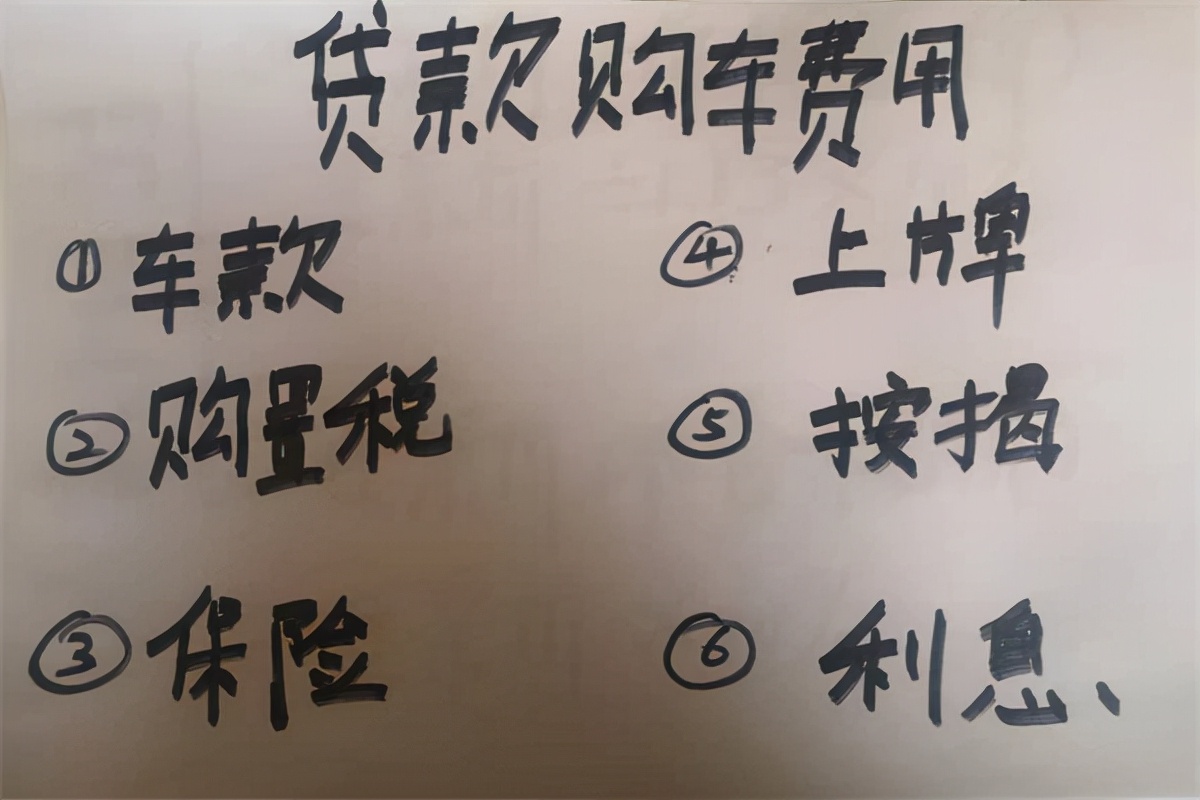 贷款购车费用
①车款
②购置税
③保险
④上牌
⑤按揭
⑥利息、